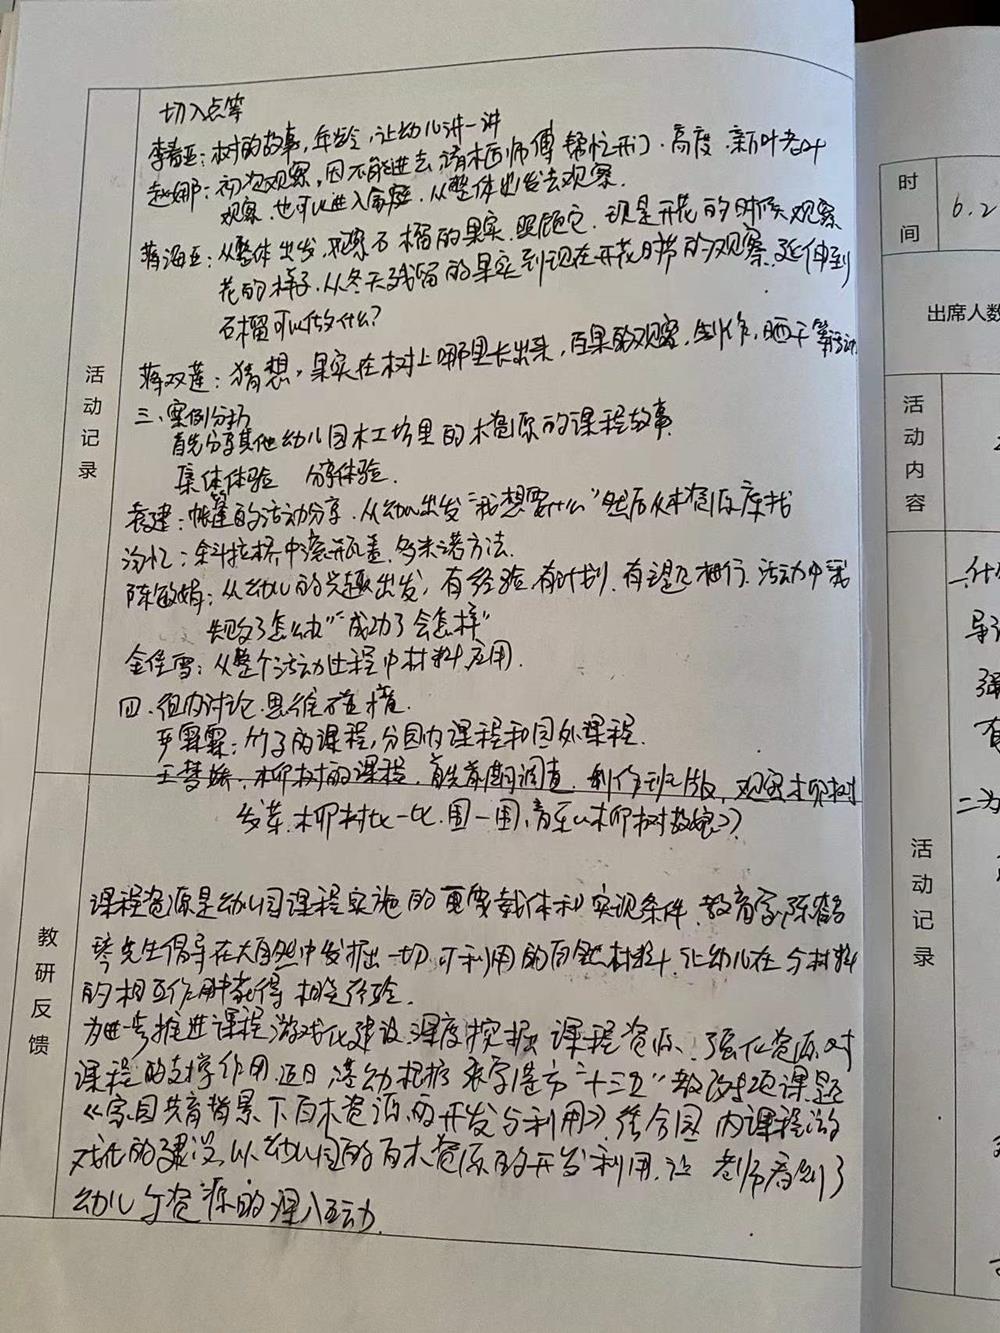 切入点等
李春亚：树的故事，年龄，让幼儿讲一讲
赵娜：初次观察，因不能进去，请木匠师傅帮忙开门．高度．新叶老叶
观察．也可以进入家庭．从整体出发去观察．
蒋海亚：从整体出发，观察石榴的果实．照顾它．现是开花的时候观察
花的样子．从冬天残留的果实到现在开花时节的观察．延伸到
石榴可以做什么？
蒋双莲：猜想，果实在树上哪里长出来，百果的观察，制作，晒干等活动
三、案例分析
首先分享其他幼儿园木工坊里的木资源的课程故事
集体体验 分享体验．
袁建：帐篷的活动分享．从幼儿出发“我想要什么”然后从木资源库找
汤忆：斜拉桥中滚瓶盖．多米诺方法．
陈敏娟：从幼儿的兴趣出发，有经验．有计划．有 进行．活动中“
失败了怎么办”“成功了会怎样”
金佳雪：从整个活动过程中材料应用．
四、组内讨论．思维碰撞．
严霖霖：竹子的课程，分园内课程和园外课程．
王梦 ：柳树的课程．首先前期调查．制作 版，观察柳树
发芽．柳树比一比．围一围，音乐《柳树姑娘》
活动记录
课程资源是幼儿园课程实施的重要载体和实现条件．教育家陈鹤
琴先生倡导在大自然中发掘一切可利用的自然材料，让幼儿在与材料
的相互作用中获得相关经验．
为进一步推进课程游戏化建设．深度挖掘课程资源、强化资源对
课程的支撑作用．近日， 幼根据 “十三五”教改专项课题
《家园共育背景下百木资源的开发与利用》，结合园内课程游
戏化的建设，以幼儿园的百木资源的开发利用，让老师看到了
幼儿与资源的深入互动．
教研反馈
时间
6.2
出席人数
活动内容
活动记录
一、什
导
强
有
二、为